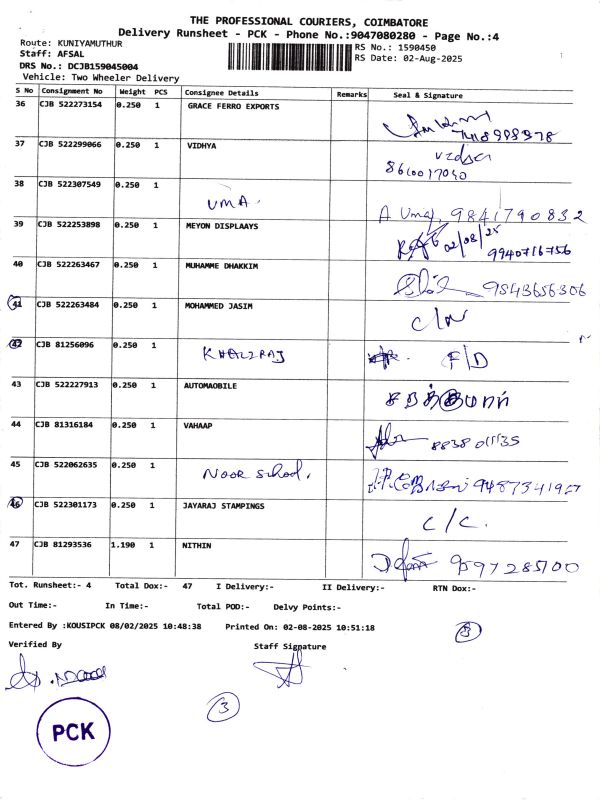 THE PROFESSIONAL COURIERS, COIMBATORE
Delivery Runsheet - PCK - Phone No.:9047080280 - Page No.:4
Route: KUNIYAMUTHUR
RS No.: 1590450
Staff: AFSAL
RS Date: 02-Aug-2025
DRS No.: DCJB159045004
Vehicle: Two Wheeler Delivery
S No Consignment No Weight PCS Consignee Details Remarks Seal & Signature
36 CJB 522273154 0.250 1 GRACE FERRO EXPORTS
37 CJB 522299066 0.250 1 VIDHYA
8610017040
38 CJB 522307549 0.250 1 UMA
A Uma, 9841790832
39 CJB 522253898 0.250 1 MEYON DISPLAAYS 02/08/25
9940716756
40 CJB 522263467 0.250 1 MUHAMME DHAKKIM
9543656306
41 CJB 522263484 0.250 1 MOHAMMED JASIM
C/N
42 CJB 81256096 0.250 1 KHALIRAJ F/D
43 CJB 522227913 0.250 1 AUTOMAOBILE
44 CJB 81316184 0.250 1 VAHAAP
45 CJB 522062635 0.250 1 NOOR School.
46 CJB 522301173 0.250 1 JAYARAJ STAMPINGS
C/C.
47 CJB 81293536 1.190 1 NITHIN
Tot. Runsheet:- 4 Total Dox:- 47 I Delivery:- II Delivery:- RTN Dox:-
Out Time:- In Time:- Total POD:- Delvy Points:-
Entered By :KOUSIPCK 08/02/2025 10:48:38 Printed On: 02-08-2025 10:51:18
Verified By Staff Signature
3
PCK